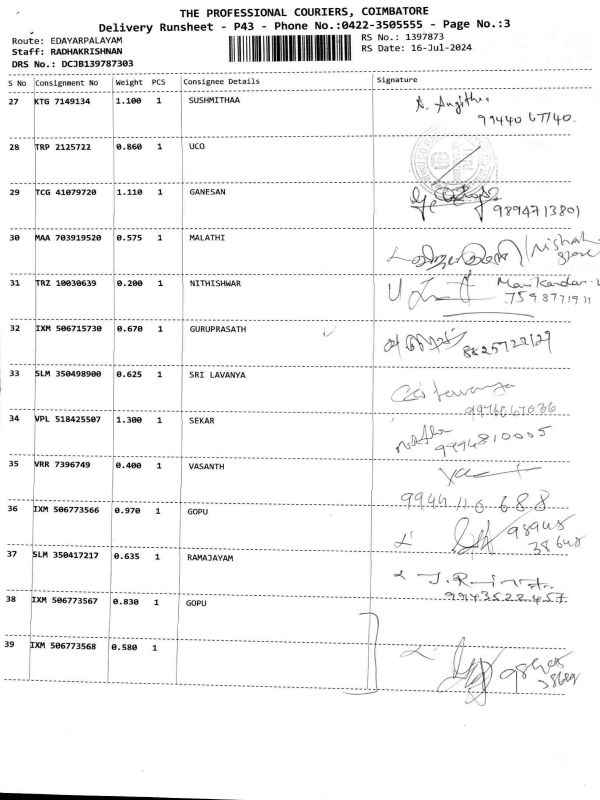 THE PROFESSIONAL COURIERS, COIMBATORE
Delivery Runsheet - P43 - Phone No.:0422-3505555 - Page No.:3
Route: EDAYARPALAYAM
RS No.: 1397873
Staff: RADHAKRISHNAN
RS Date: 16-Jul-2024
DRS No.: DCJB139787303
S No Consignment No Weight PCS Consignee Details Signature
27 KTG 7149134 1.100 1 SUSHMITHAA
99440 67740.
28 TRP 2125722 0.860 1 UCO
29 TCG 41079720 1.110 1 GANESAN
9894713801
30 MAA 703919520 0.575 1 MALATHI
31 TRZ 10030639 0.200 1 NITHISHWAR
7598771911
32 IXM 506715730 0.670 1 GURUPRASATH
8825722129
33 SLM 350498900 0.625 1 SRI LAVANYA
9976067036
34 VPL 518425507 1.300 1 SEKAR
9994810005
35 VRR 7396749 0.400 1 VASANTH
9944 110 688
36 IXM 506773566 0.970 1 GOPU
37 SLM 350417217 0.635 1 RAMAJAYAM
9943522457
38 IXM 506773567 0.830 1 GOPU
39 IXM 506773568 0.580 1